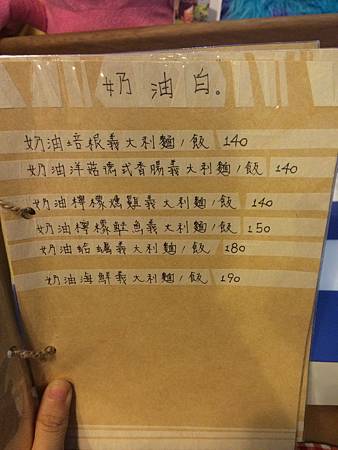 奶油白。
奶油培根義大利麵/飯 140
奶油洋菇德式香腸義大利麵/飯 140
奶油檸檬燻雞義大利麵/飯 140
奶油檸檬鮭魚義大利麵/飯 150
奶油蛤蠣義大利麵/飯 180
奶油海鮮義大利麵/飯 190